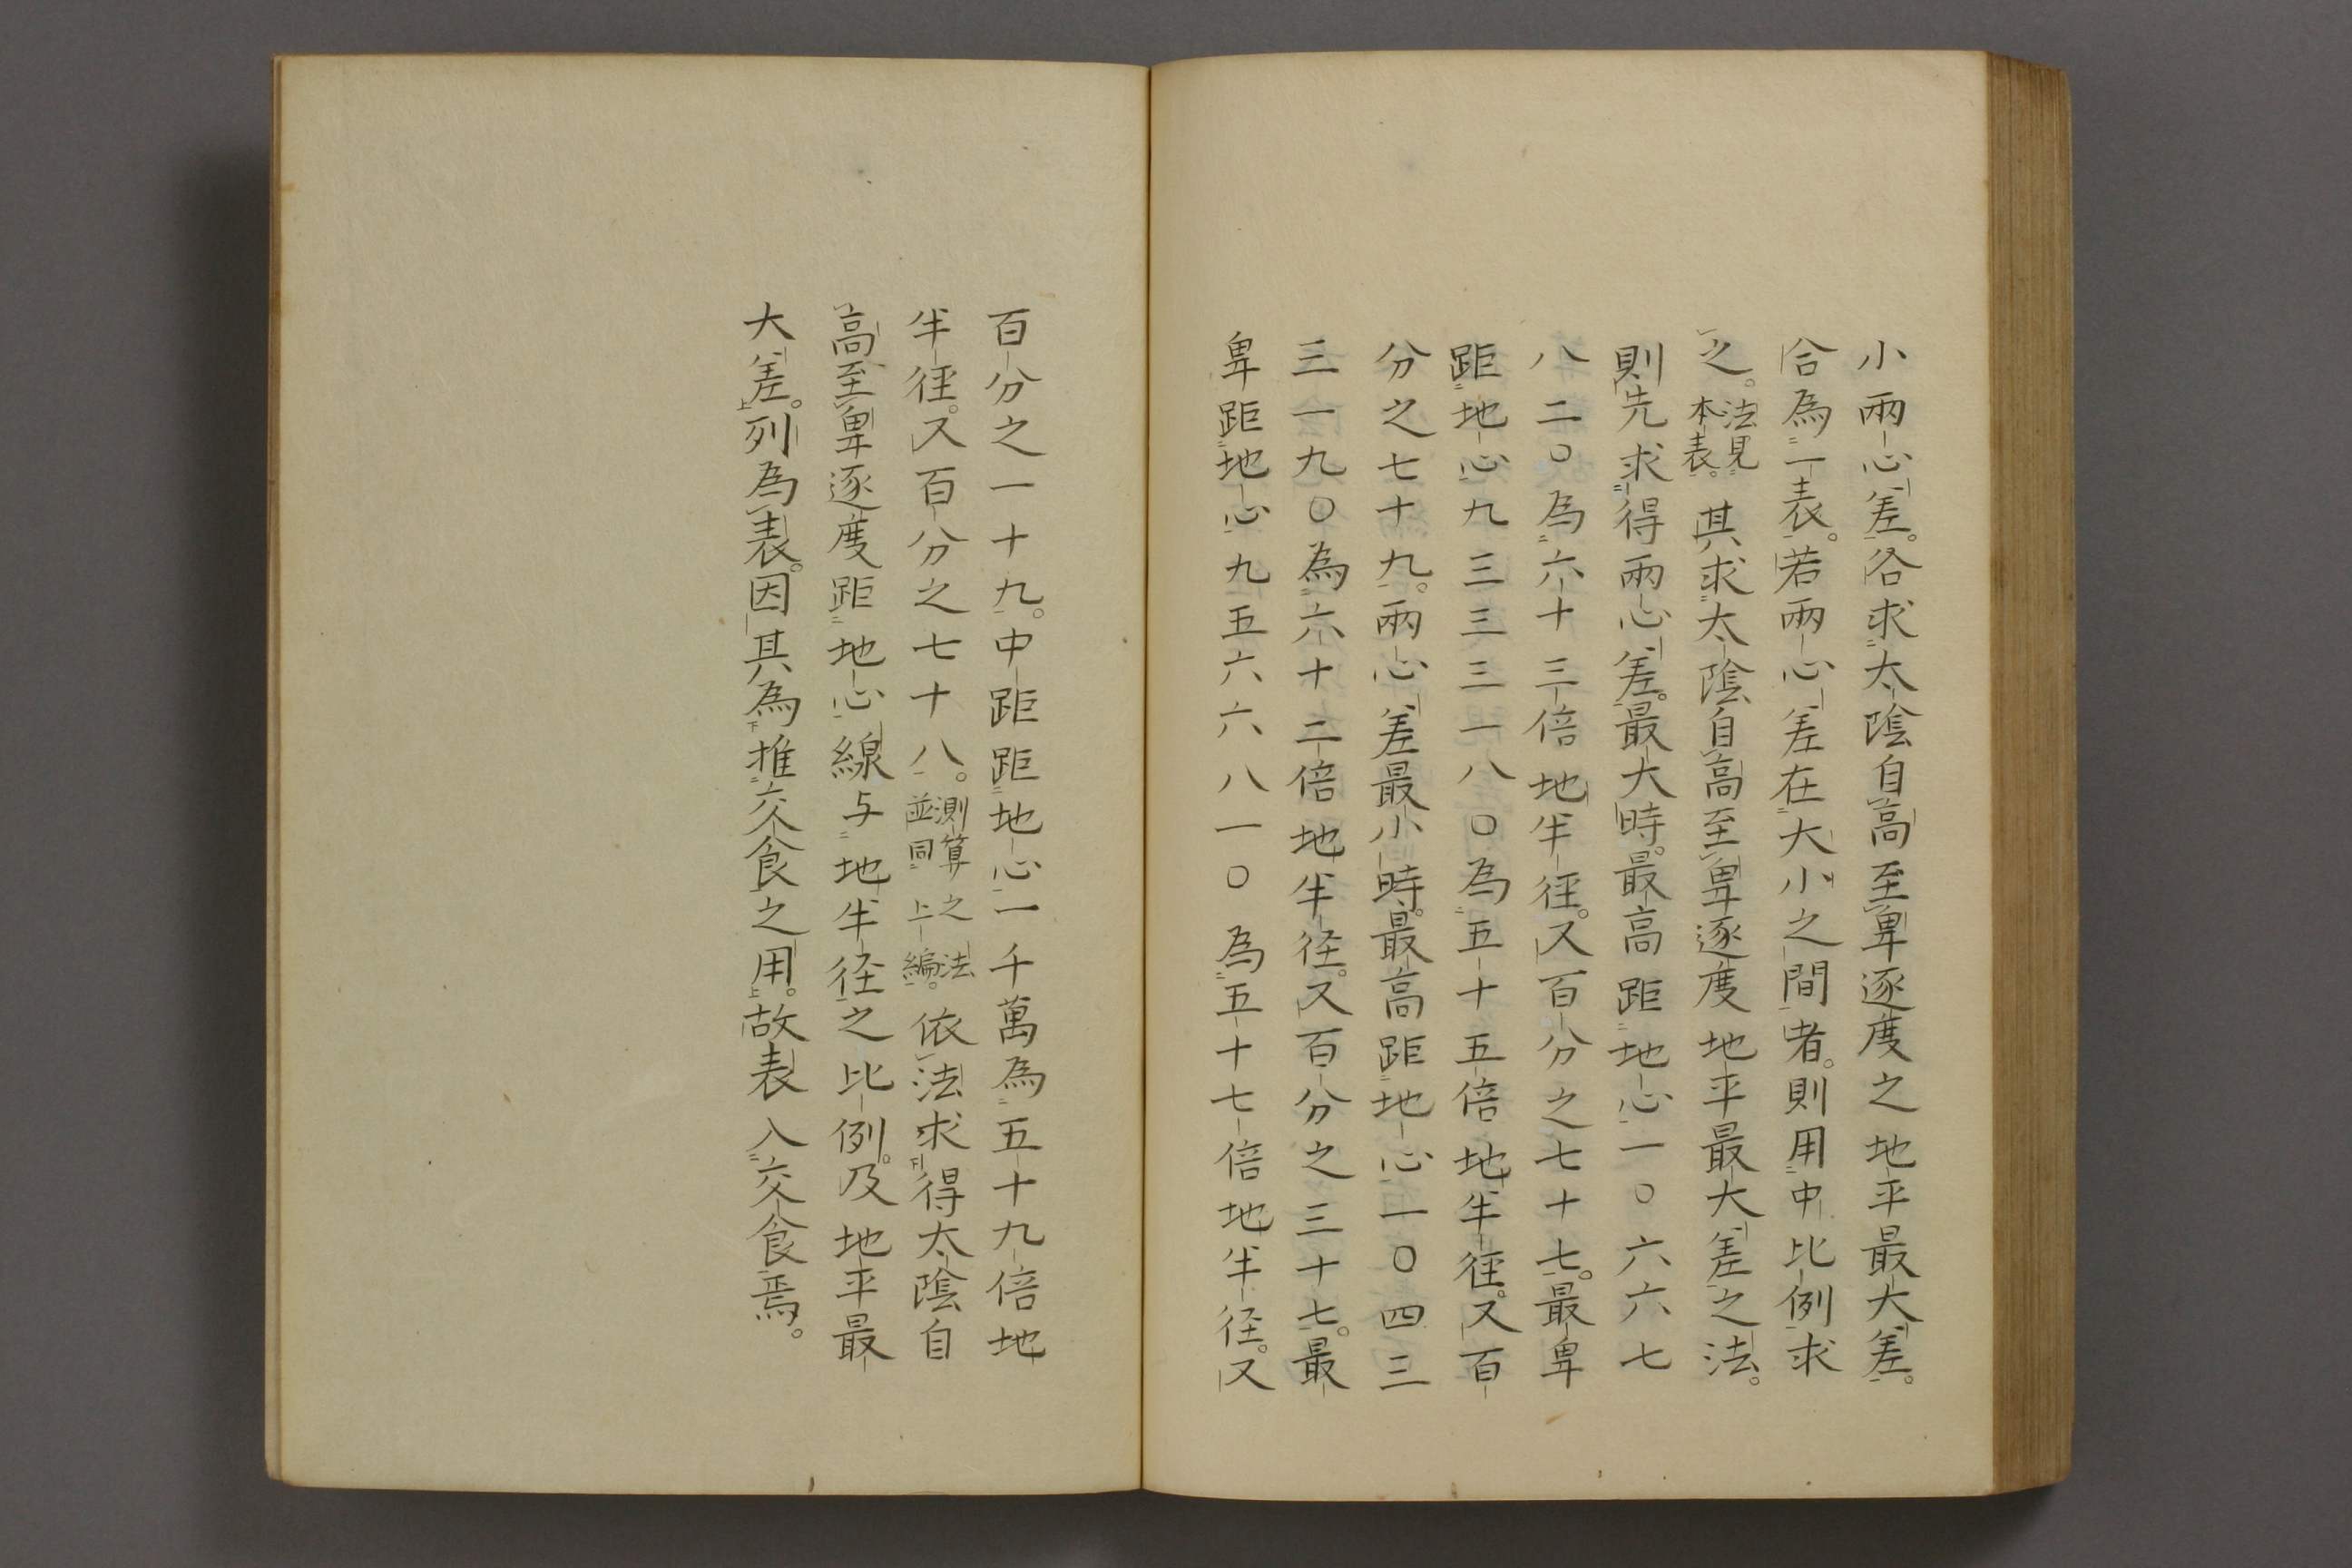 小兩心差。各求太陰自高至卑逐度之地平最大差。
合為一表。若兩心差在大小之間者。則用中比例求
之。法見本表。其求太陰自高至卑逐度地平最大差之法。
則先求得兩心差。最大時。最高距地心一〇六六七
八二〇為六十三倍地半徑。又百分之七十七。最卑
距地心九三三三一八〇為五十五倍地半徑。又百
分之七十九。兩心差最小時。最高距地心一〇四三
三一九〇為六十二倍地半径。又百分之三十七。最
卑距地心九五六六八一〇為五十七倍地半径。又
百分之一十九。中距距地心一千萬為五十九倍地
半徑。又百分之七十八。測算之法並同上編。依法求得太陰自
高至卑逐度距地心線与地半径之比例。及地平最
大差。列為表。因其為推交食之用。故表入交食焉。